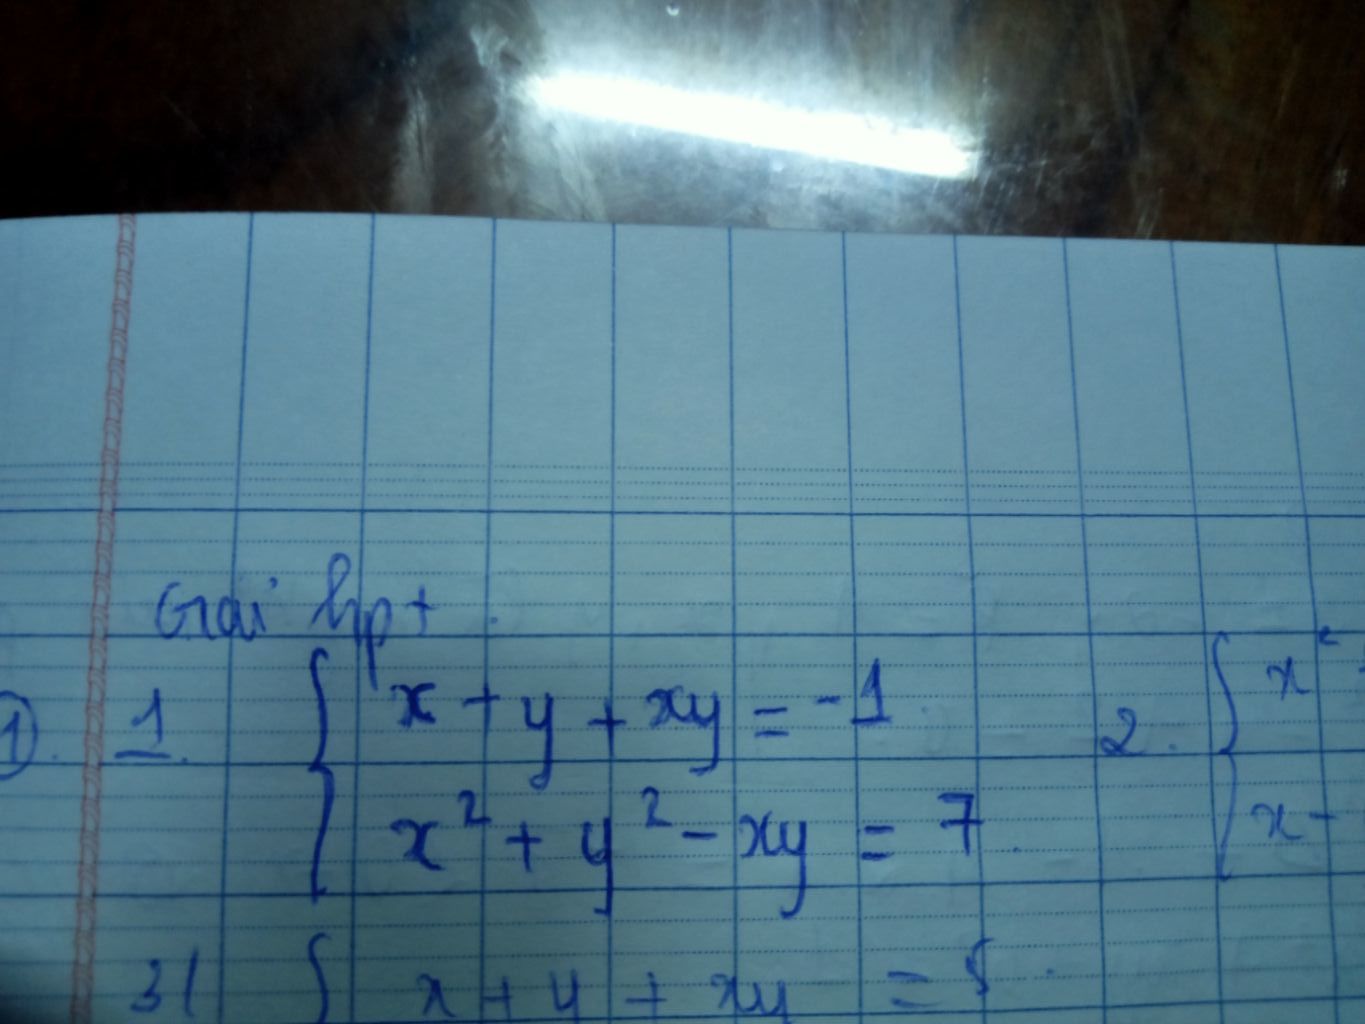 Giải hpt.
①. 1. { x + y + xy = -1.
x² + y² - xy = 7.
2. { x²
x -
3/ { x + y + xy = 5.